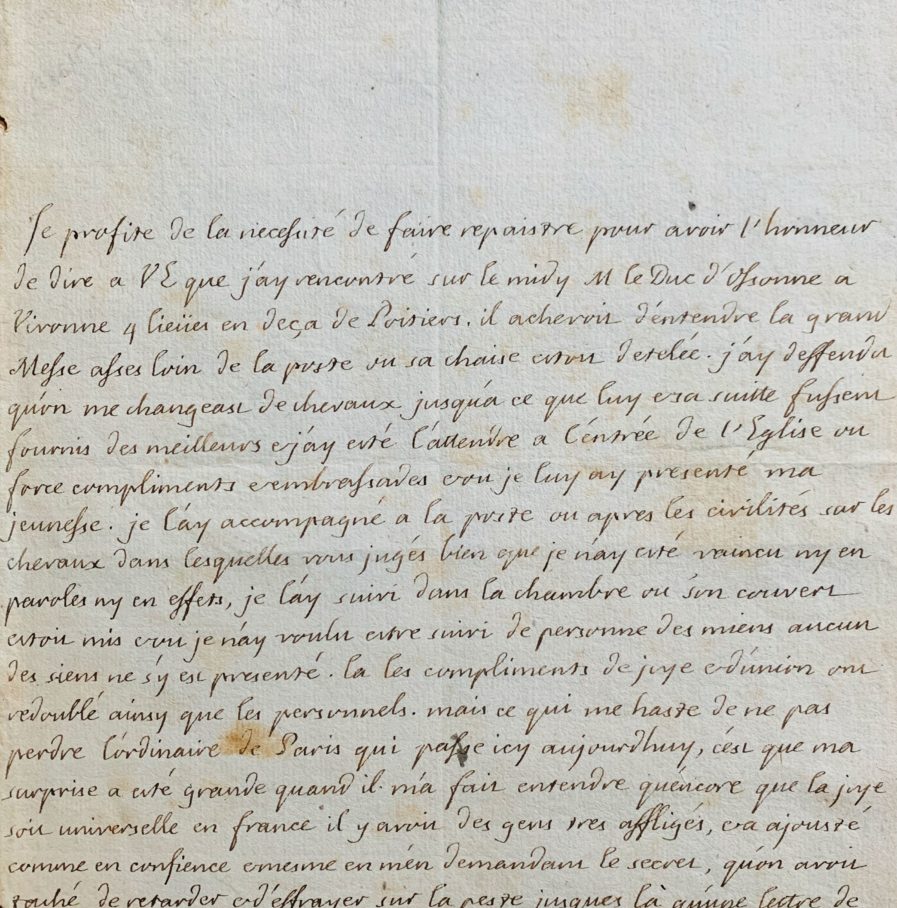 Je profite de la necessité de faire repaistre pour avoir l'honneur
de dire a VE que j'ay rencontré sur le midy M le Duc d'Ossonne a
Vivonne 4 lieües en deça de Poitiers. il achevoit d'entendre la grand
Messe asses loin de la poste ou sa chaise etoit detelée. j'ay deffendu
qu'on me changeast de chevaux jusqu'a ce que luy et sa suitte fussent
fournis des meilleurs et j'ay eté l'attendre a l'entrée de l'Eglise ou
force compliments et embrassades et ou je luy ay presenté ma
jeunesse. je l'ay accompagné a la poste ou apres les civilités sur les
chevaux dans lesquelles vous jugés bien que je n'ay eté vaincu ny en
paroles ny en effets, je l'ay suivi dans la chambre ou son couvert
etoit mis et ou je n'ay voulu etre suivi de personne des miens aucun
des siens ne s'y est presenté. la les compliments de joye et d'union ont
redoublé ainsy que les personnels. mais ce qui me haste de ne pas
perdre l'ordinaire de Paris qui passe icy aujourdhuy, c'est que ma
surprise a eté grande quand il m'a fait entendre qu'encore que la joye
soit universelle en france il y avoit des gens tres affligés, et a ajousté
comme en confience et mesme en m'en demandant le secret, qu'on avoit
taché de retarder et d'effrayer sur la peste jusques là qu'une lettre de